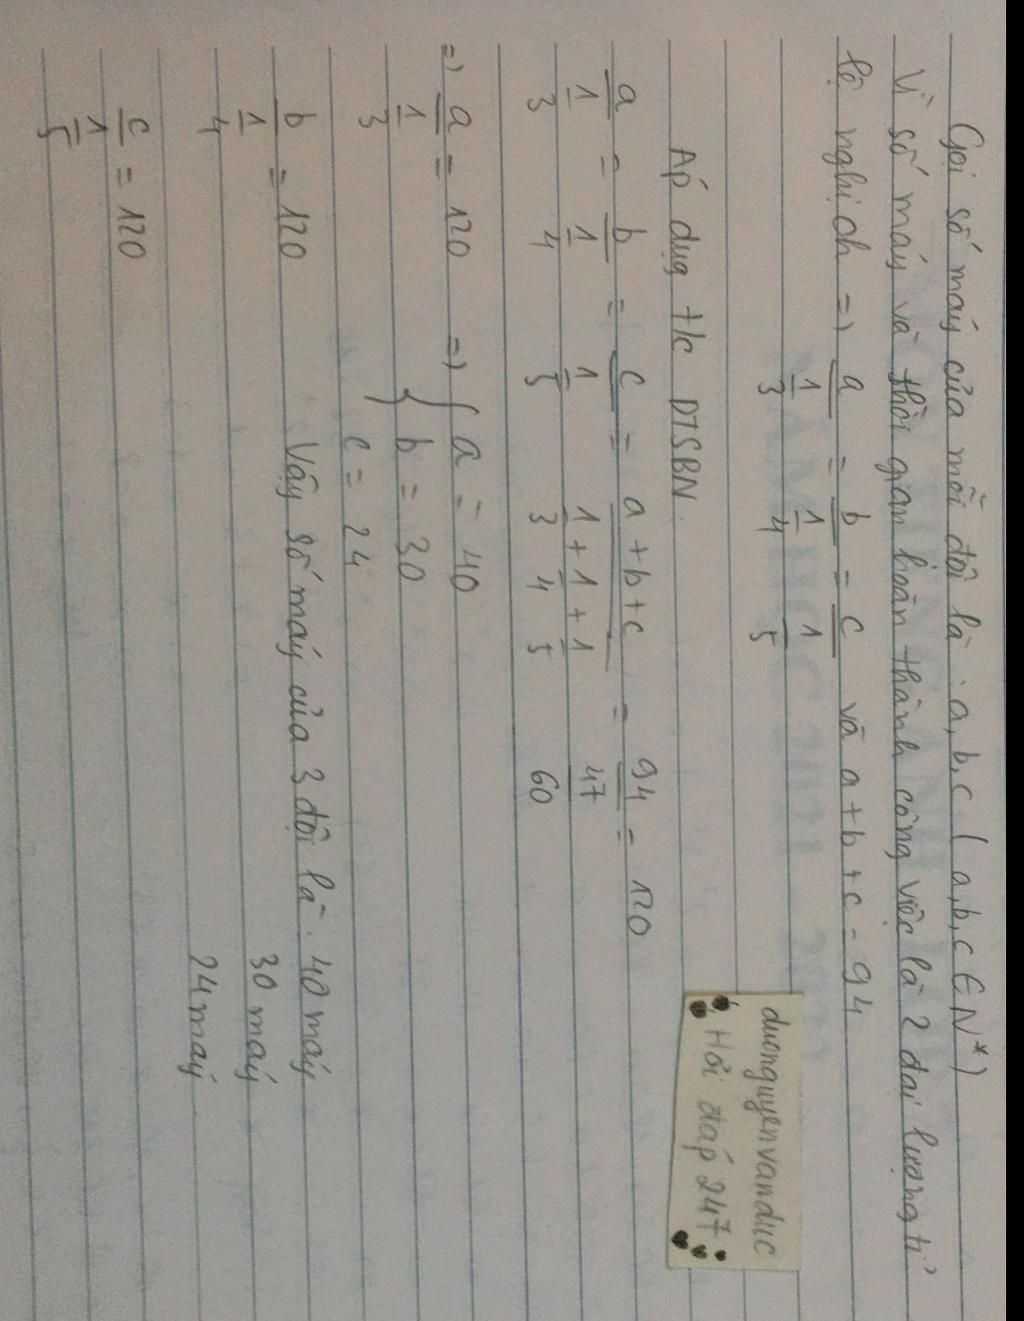 Gọi số máy của mỗi đội là : a, b, c ( a, b, c ∈ N*)
Vì số máy và thời gian hoàn thành công việc là 2 đại lượng tỉ
lệ nghịch => a/(1/3) = b/(1/4) = c/(1/5) và a + b + c = 94
Áp dụg t/c DTSBN.
a/(1/3) = b/(1/4) = c/(1/5) = (a+b+c)/(1/3+1/4+1/5) = 94/(47/60) = 120
=> a/(1/3) = 120 => { a = 40
b/(1/4) = 120
b = 30
c/(1/5) = 120
c = 24
Vậy số máy của 3 đội là : 40 máy
30 máy
24 máy
duonguyenvanduc
Hỏi đáp 247